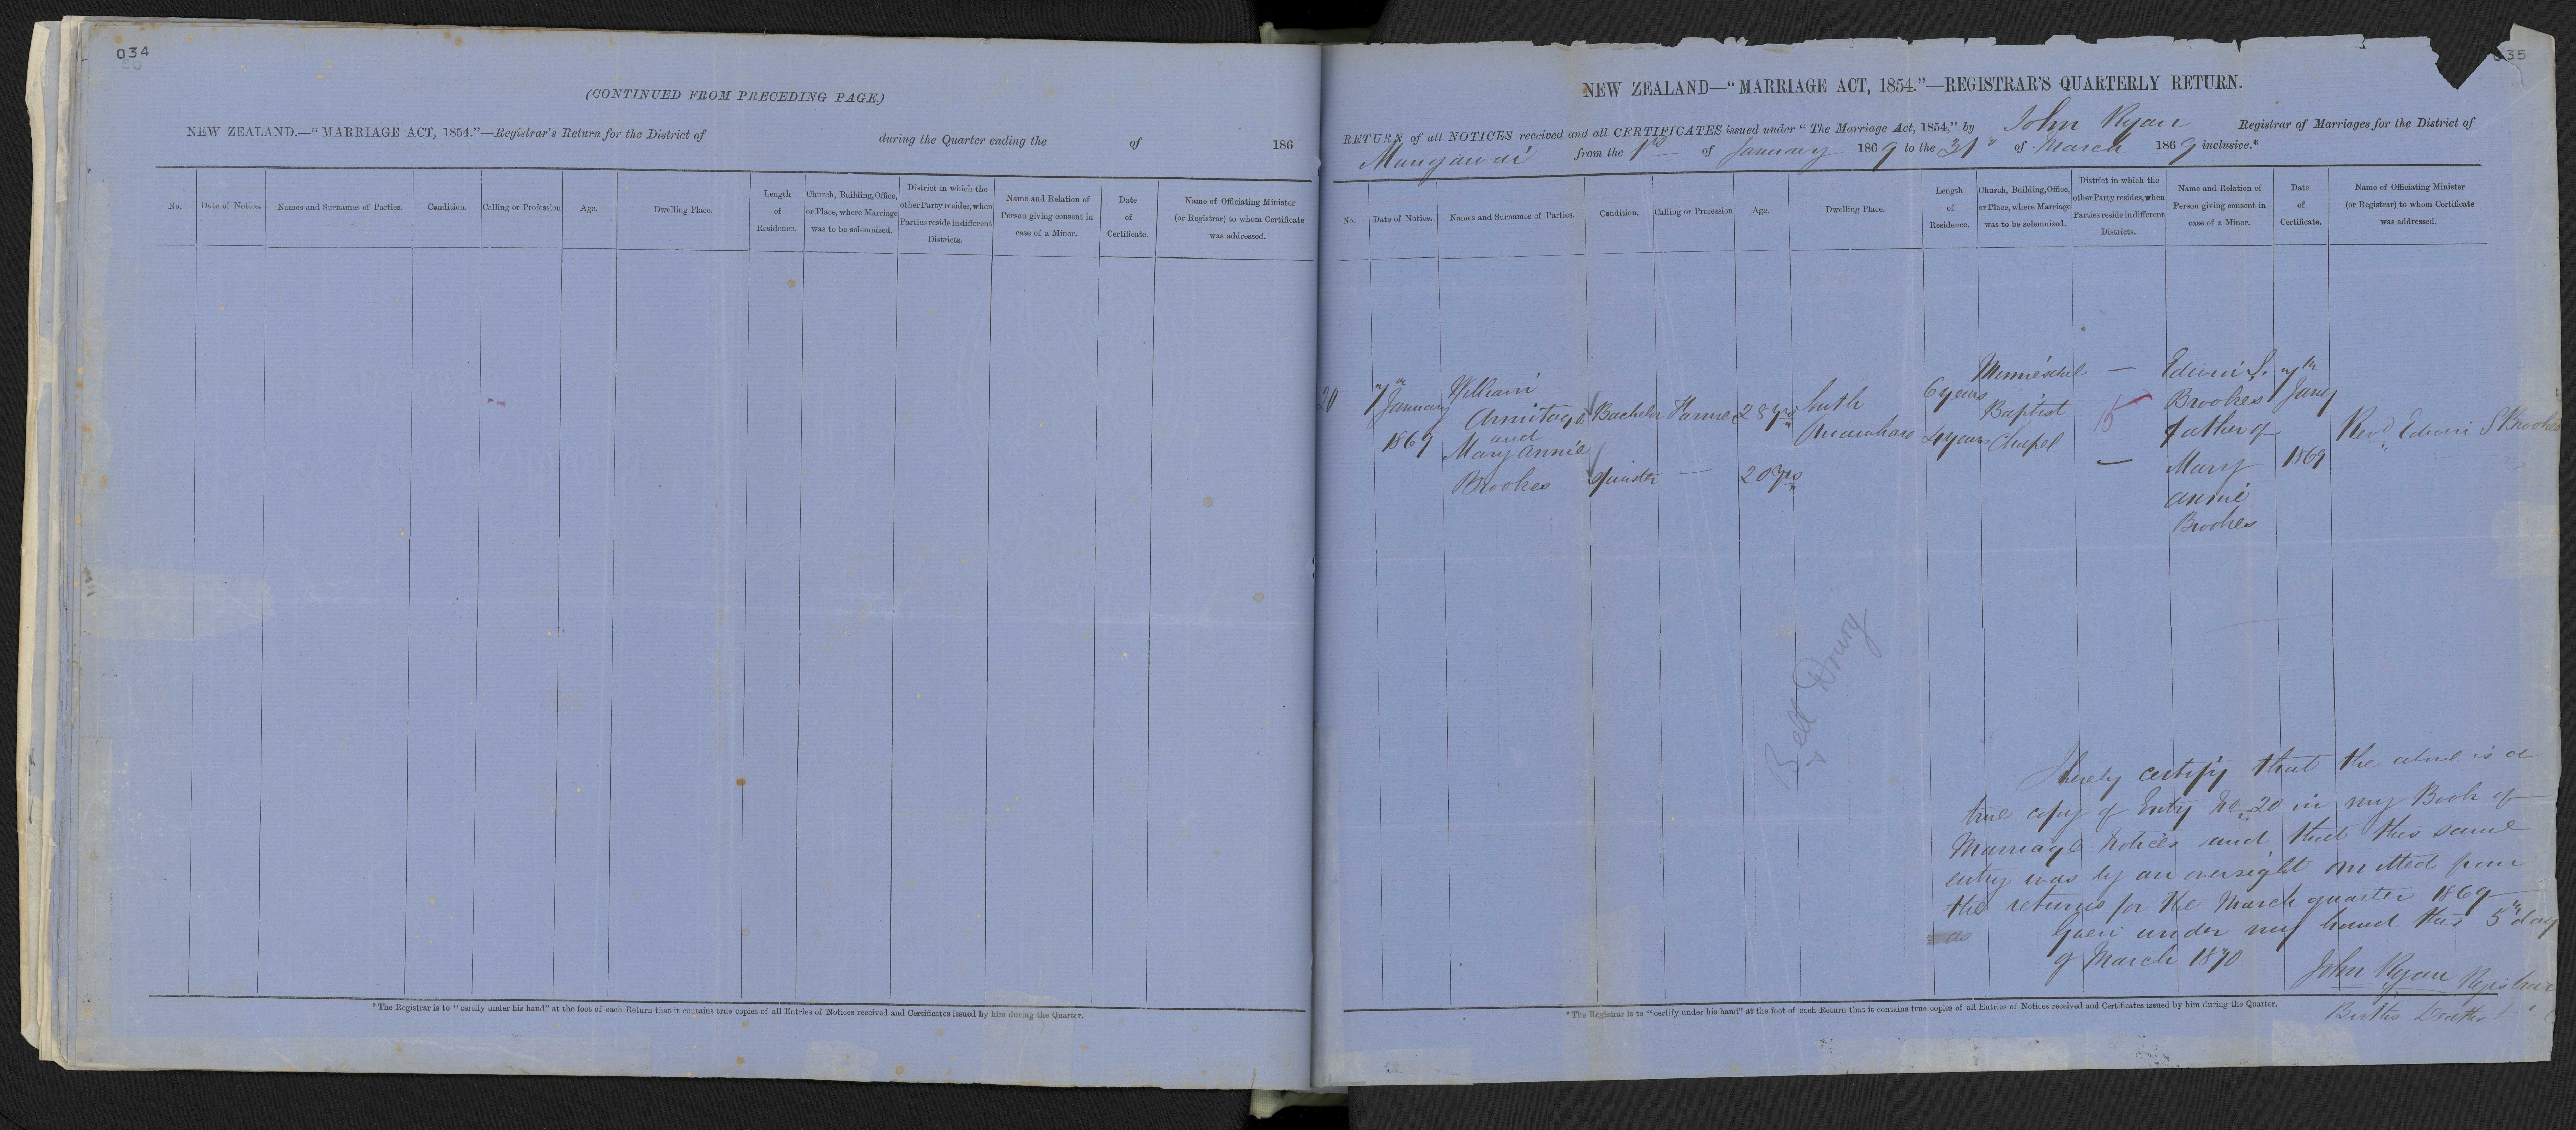 034
(CONTINUED FROM PRECEDING PAGE.)
NEW ZEALAND.—"MARRIAGE ACT, 1854."—Registrar's Return for the District of during the Quarter ending the of 186
No. Date of Notice. Names and Surnames of Parties. Condition. Calling or Profession Age. Dwelling Place. Length of Residence. Church, Building, Office, or Place, where Marriage was to be solemnized. District in which the other Party resides, when Parties reside in different Districts. Name and Relation of Person giving consent in case of a Minor. Date of Certificate. Name of Officiating Minister (or Registrar) to whom Certificate was addressed.
*The Registrar is to "certify under his hand" at the foot of each Return that it contains true copies of all Entries of Notices received and Certificates issued by him during the Quarter.
035
NEW ZEALAND—"MARRIAGE ACT, 1854."—REGISTRAR'S QUARTERLY RETURN.
RETURN of all NOTICES received and all CERTIFICATES issued under "The Marriage Act, 1854," by John Ryan Registrar of Marriages for the District of
Mangawai from the 1st of January 1869 to the 31st of March 1869 inclusive.*
No. Date of Notice. Names and Surnames of Parties. Condition. Calling or Profession Age. Dwelling Place. Length of Residence. Church, Building, Office, or Place, where Marriage was to be solemnized. District in which the other Party resides, when Parties reside in different Districts. Name and Relation of Person giving consent in case of a Minor. Date of Certificate. Name of Officiating Minister (or Registrar) to whom Certificate was addressed.
20
7th
January
1869
William
Armitage
and
Mary Annie
Brookes
Bachelor
Spinster
Farmer
—
28 yrs
20 yrs
South
6 years
4 years
Baptist
Chapel
—
15
—
Edwin S.
Brookes
father of
Mary
Annie
Brookes
7th
Jany
1869
Revd. Edwin S Brookes
Bell Drury
I hereby certify that the above is a
true copy of Entry No 20 in my Book of
Marriage Notices and that this same
entry was by an oversight omitted from
the returns for the March quarter 1869
Given under my hand this 5th day
of March 1870
John Ryan Registrar
Births Deaths
*The Registrar is to "certify under his hand" at the foot of each Return that it contains true copies of all Entries of Notices received and Certificates issued by him during the Quarter.